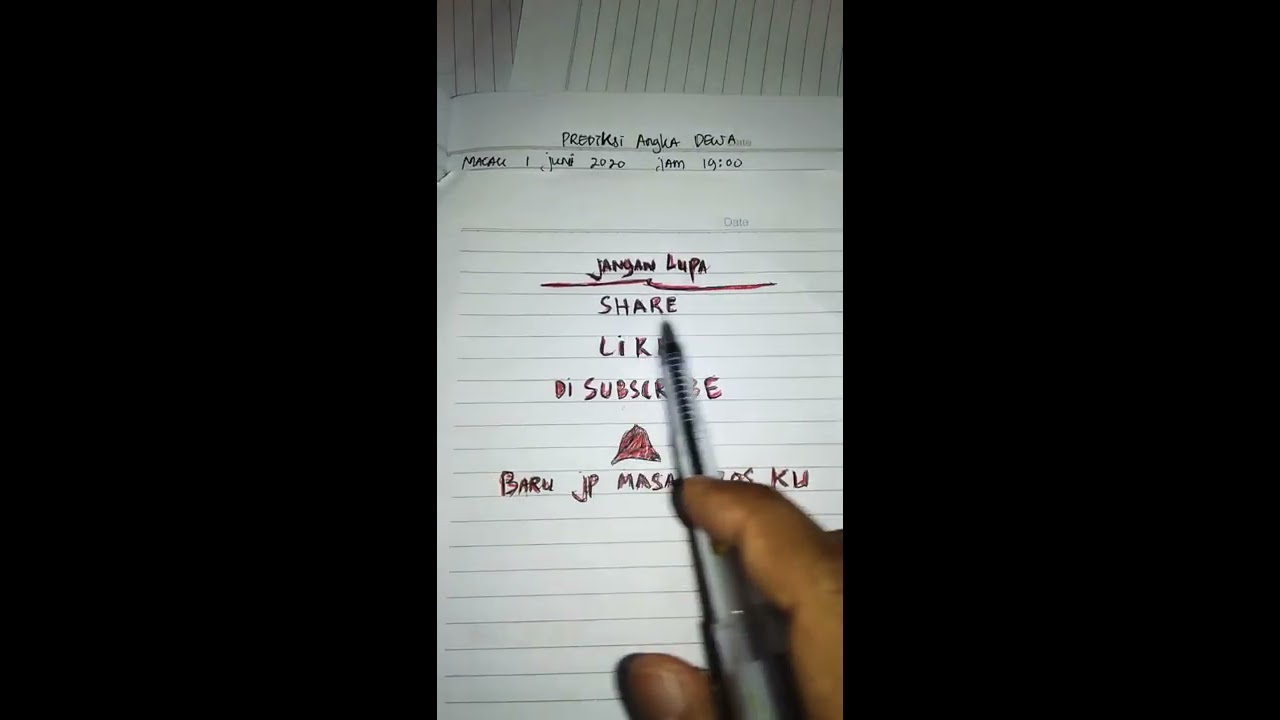 PREDiKSi AngKA DEWA
MACAU 1 juni 2020 jAM 19:00
Date
jANGAN LUPA
SHARE
LiKE
Di SUBSCRIBE
BARU jp MASA KU